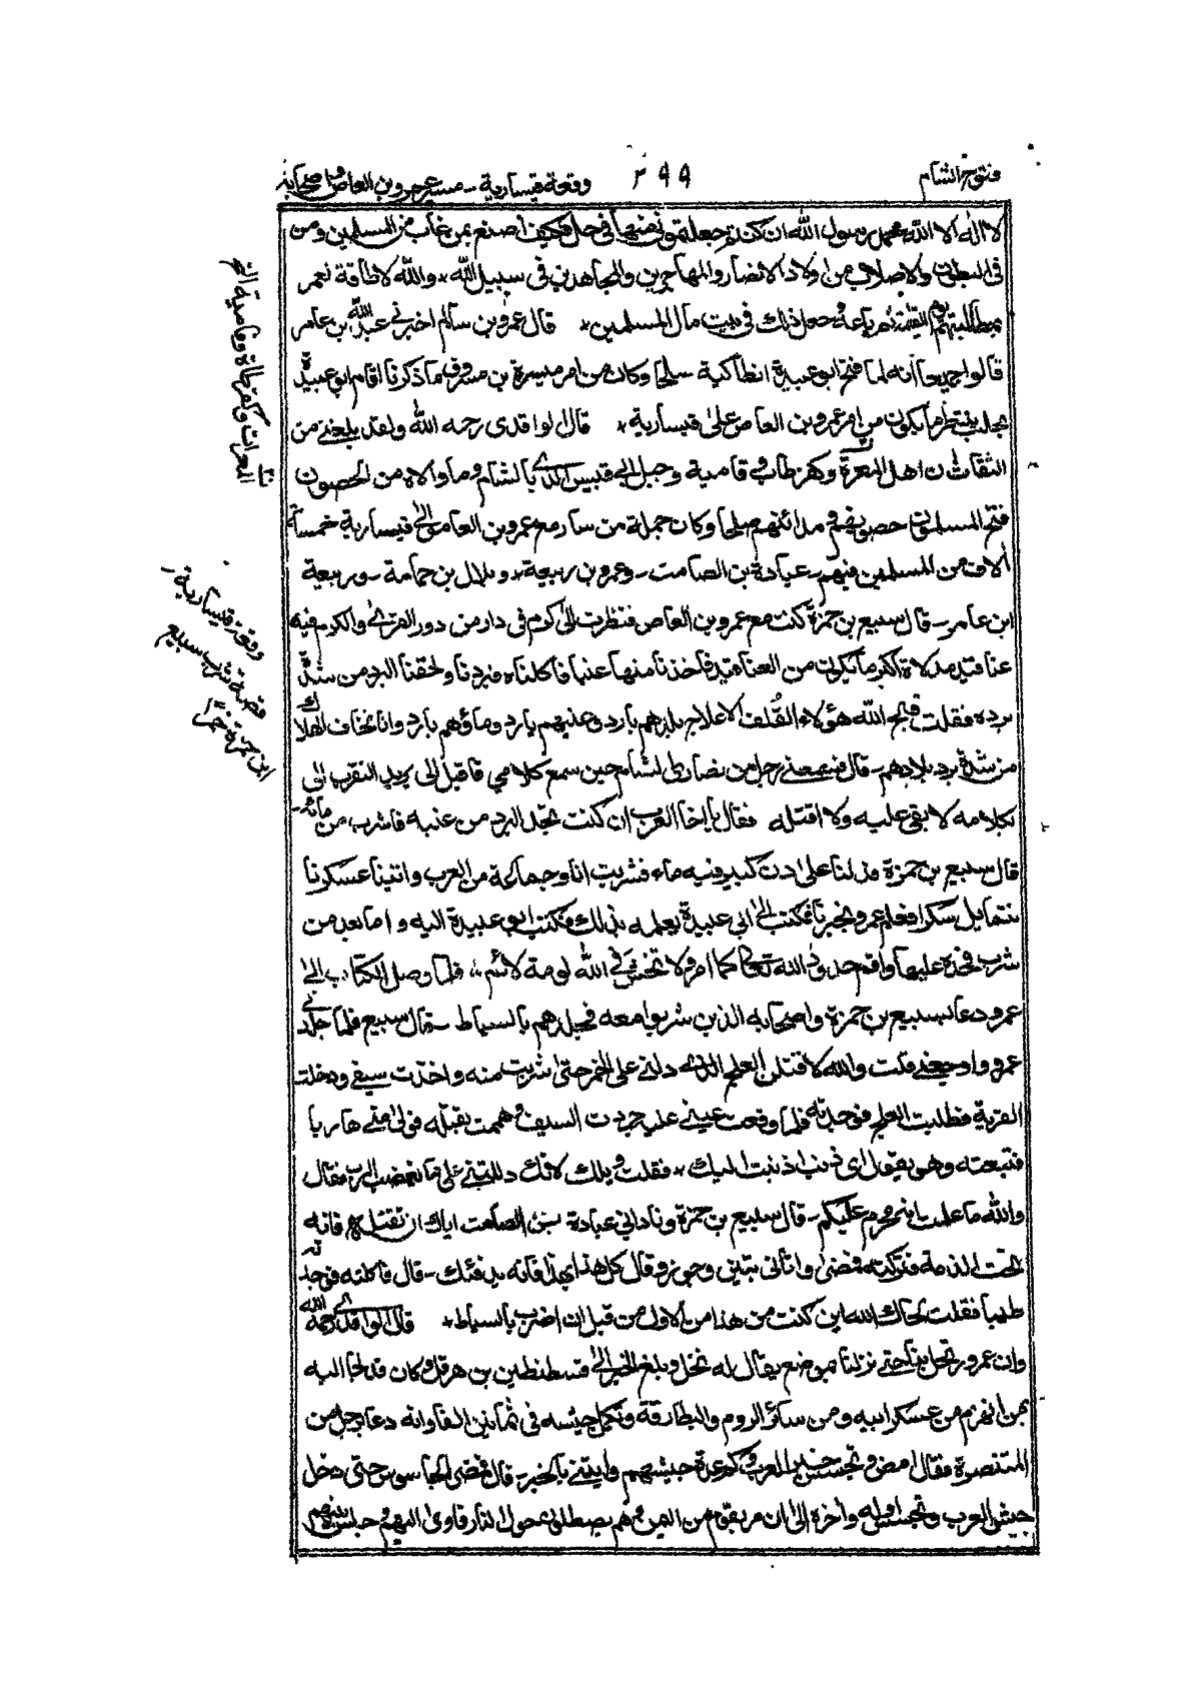 فتوح الشام
٢٩٩
وقعة قيسارية - مسير عمرو بن العاص واصحابه
لا اله الا الله محمد رسول الله ان كنتم جعلتموني منها في حل فكيف اصنع بمن غاب من المسلمين ومن
فى البطون والاصلاب من اولاد الانصار والمهاجرين والمجاهدين فى سبيل الله * والله لا طاقة لعمر
بمطالبتهم يوم القيمة ثم باعه وجعل ذلك فى بيت مال المسلمين * قال عمرو بن سالم اخبرنى عبد الله بن عامر
قالوا جميعا انه لما فتح ابو عبيدة انطاكية صلحا وكان من امر ميسرة بن مسروق ما ذكرنا اقام ابو عبيدة
بحلب ينتظر ما يكون من امر عمرو بن العاص على قيسارية * قال الواقدى رحمه الله ولقد بلغنى من
الثقات ان اهل المعرة وكفرطاب و فامية وجبل ابى قبيس الذى بالشام وما والاه من الحصون
فتح المسلمون حصونهم و مدائنهم صلحا وكان جملة من سار مع عمرو بن العاص الى قيسارية خمسة
آلاف من المسلمين فيهم - عبادة بن الصامت - وعمرو بن ربيعة * و بلال بن حمامة - وربيعة
ابن عامر - قال سبيع بن حمزة كنت مع عمرو بن العاص فنظرت الى كرم فى دار من دور القرى والكرم فيه
عناقيد مدلاة اكبر ما يكون من العناقيد فاخذنا منها عنبا فاكلناه فبردنا ولحقنا البرد من شدة
برده فقلت قبح الله هؤلاء القلف الاعلاج بلدهم بارد وعنبهم بارد وماؤهم بارد وانا نخاف الهلاك
من شدة برد بلادهم - قال فسمعنى رجل من نصارى الشام حين سمع كلامي فاقبل الى يريد التقرب الى
بكلامه لا بقى عليه ولا اقتله فقال يا اخا العرب ان كنت تجد البرد من عنبه فاشرب من مائه
قال سبيع بن حمزة فدلنا على دن كبير فيه ماء فشربت انا وجماعة من العرب واتينا عسكرنا
نتمايل سكرا فعلم عمرو بخبرنا فكتب الى ابى عبيدة يعلمه بذلك فكتب ابو عبيدة اليه واما بعد من
شرب فحده عليها واقم حدود الله تعالى كما امر ولا تخش فى الله لومة لائم ، فلما وصل الكتاب الى
عمرو دعا بسبيع بن حمزة واصحابه الذين شربوا معه فجلدهم بالسياط - قال سبيع فلما جلدنى
عمرو واوجعنى قلت والله لاقتلن العلج الذى دلنى على الخمر حتى شربت منه واخذت سيفى ودخلت
القرية فطلبت العلج فوجدته فلما وقعت عينى عليه جردت السيف و هممت بقتله فولى منى هاربا
فتبعته وهو يقول اى ذنب اذنبت اليك * فقلت ويلك لانك دللتنى على ما يغضب الرب فقال
والله ما علمت بانه محرم عليكم - قال سبيع بن حمزة ونادانى عبادة بن الصامت اياك ان تقتله فانه
تحت الذمة فتركته فمضى واتانى بتين وجوز وقال كل هذا بهذا فانه يدفئك - قال فاكلته فوجدته
طيبا فقلت لحاك الله اين كنت من هذا من الاول من قبل ان اضرب بالسياط * قال الواقدى رحمه الله
وان عمرو رتحل بنا حتى نزلنا بموضع يقال له نخل وبلغ الخبر الى قسطنطين بن هرقل وكان قد لجا اليه
من انهزم من عسكر ابيه ومن سائر الروم والبطارقة وتكمل جيشه فى ثمانين الفا وانه دعا برجل من
المتنصرة فقال امض و تجسس خبر العرب و كم عدة جيشهم وايتنى بالخبر - قال فمضى الجاسوس حتى دخل
جيش العرب و تجسس اوله وآخره الى ان مر بقوم من اليمن وهم يصطلون حول النار فاوى اليهم وجلس بينهم
وقعة قيسارية
قصة شرب سبيع
ابن حمزة خمرا